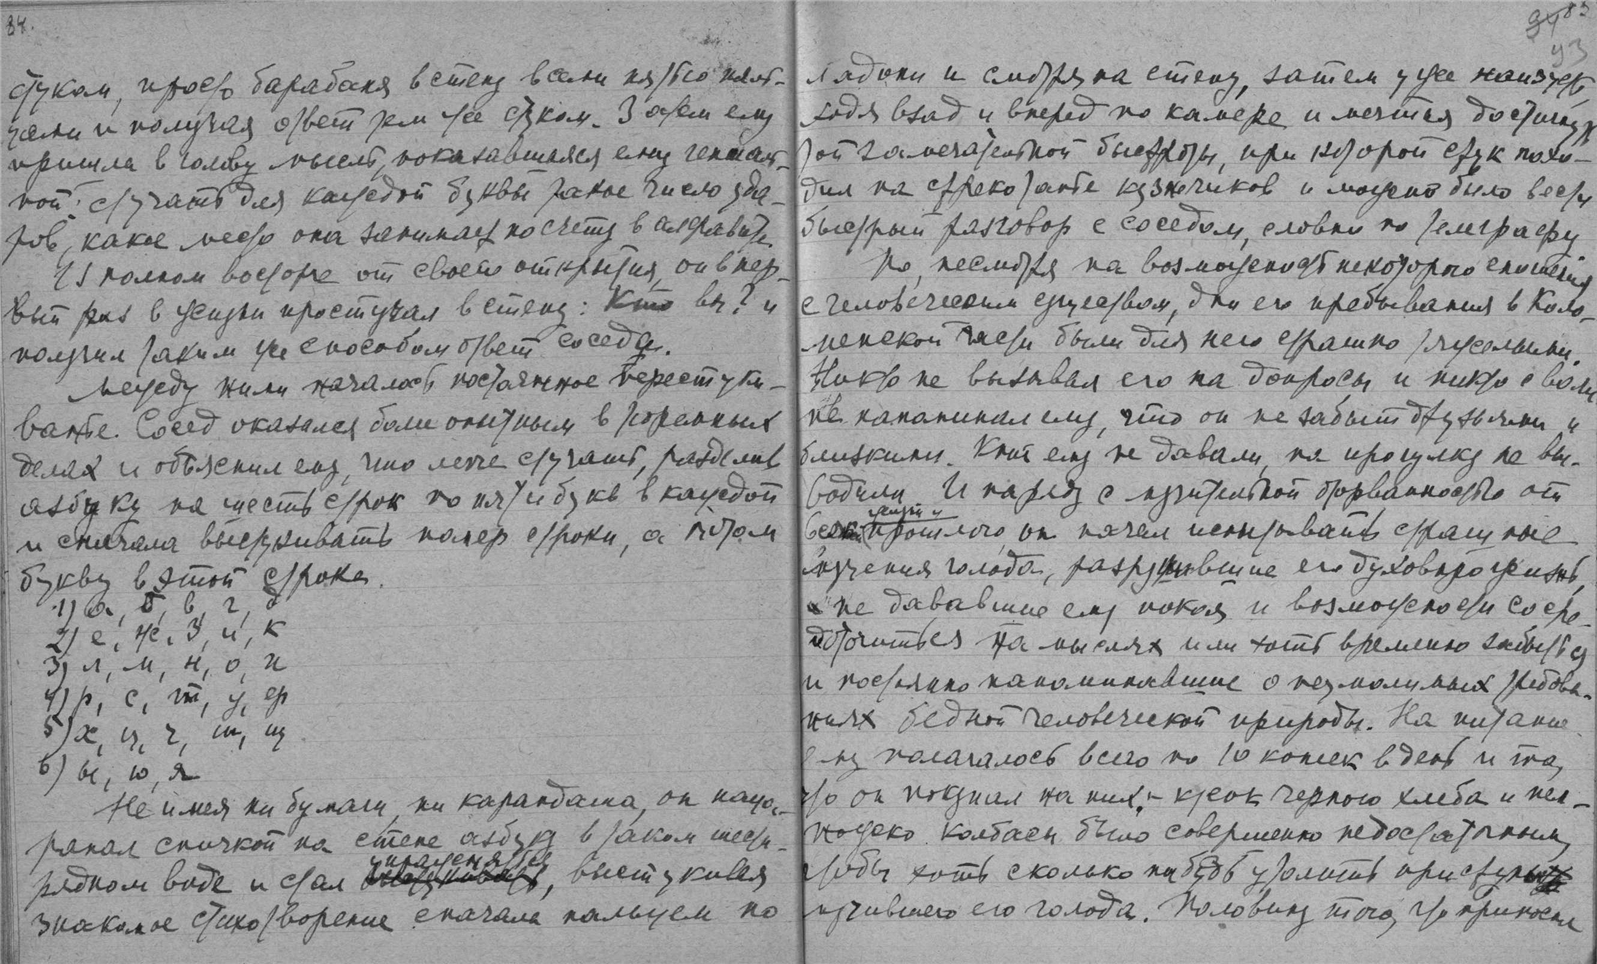 84.
стуком, просто барабаня в стену всеми пятью паль-
цами и получая ответ тем же стуком. Затем ему
пришла в голову мысль, показавшаяся ему гениаль-
ной: стучать для каждой буквы такое число уда-
ров, какое место она занимает по счету в алфавите.
В полном восторге от своего открытия, он в пер-
вый раз в жизни простучал в стену: Кто вы? и
получил таким же способом ответ соседа.
Между ними началось постоянное перестуки-
ванье. Сосед оказался более опытным в тюремных
делах и объяснил ему, что легче стучать, разделив
азбуку на шесть строк по пяти букв в каждой
и сначала выстукивать номер строки, а потом
букву в этой строке.
1) а, б, в, г, д
2) е, ж, з, и, к
3) л, м, н, о, п
4) р, с, т, у, ф
5) х, ц, ч, ш, щ
6) ы, ю, я
Не имея ни бумаги, ни карандаша, он наца-
рапал спичкой на стене азбуку в таком шести-
рядном виде и стал упражняться, выстукивая
знакомое стихотворение сначала пальцем по
83
93
ладони и смотря на стену, затем уже наизусть,
ходя взад и вперед по камере и мечтая достигнуть
той замечательной быстроты, при которой стук похо-
дил на стрекотанье кузнечиков и можно было вести
быстрый разговор с соседом, словно по телеграфу
Но, несмотря на возможность некоторого сношения
с человеческим существом, дни его пребывания в Коло-
менской части были для него страшно тяжелыми.
Никто не вызывал его на допросы и никто с воли
не напоминал ему, что он не забыт друзьями и
близкими. Книг ему не давали, на прогулку не вы-
водили. И наряду с мучительной оторванностью от
всей жизни и прошлого, он начал испытывать страшные
мучения голода, разрушавшие его духовную жизнь,
не дававшие ему покоя и возможности сосре-
доточиться на мыслях или хоть временно забыться
и постоянно напоминавшие о неумолимых требова-
ниях бедной человеческой природы. На питание
ему полагалось всего по 10 копеек в день и то,
что он покупал на них, - кусок черного хлеба и нем-
ножко колбасы было совершенно недостаточным,
чтобы хоть сколько нибудь утолить приступы
мучившего его голода. Половину того, что приносил